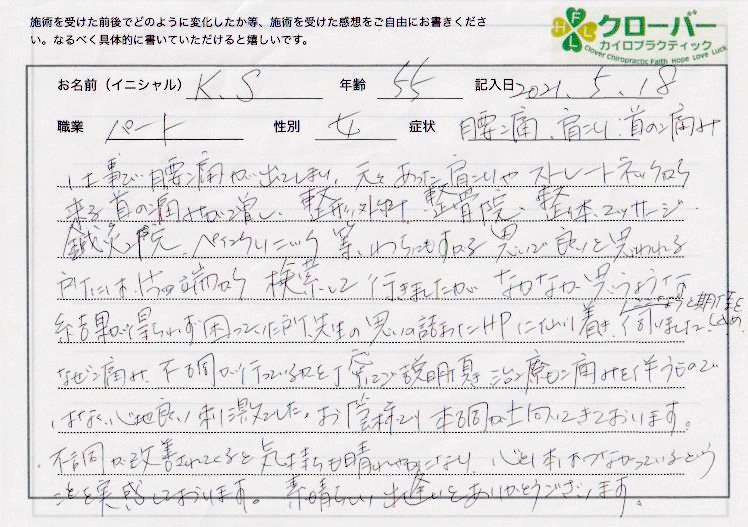 施術を受けた前後でどのように変化したか等、施術を受けた感想をご自由にお書きくださ
い。なるべく具体的に書いていただけると嬉しいです。
クローバー
カイロプラクティック
Clover Chiropractic Faith Hope Love Luck
お名前（イニシャル） K.S 年齢 55 記入日 2021.5.18
職業 パート 性別 女 症状 腰痛、肩こり、首の痛み
仕事で腰痛が出てしまい、元々あった肩こりやストレートネックから
来る首の痛みが増し、整形外科、整骨院、整体、マッサージ
鍼灸院、ペインクリニック等、わらにもすがる思いで良いと思われる
所には、片っ端から検索して行きましたが、なかなか思うような
結果が得られず困っていた所、先生の思いの詰ったHPに辿り着き、ここならと期待を込め、伺いました。
なぜ痛み、不調が行っているかを丁寧にご説明頂き、治療も痛みを伴うもので
はなく、心地良い刺激でした。お陰様で体調が上向いてきております。
不調が改善されてくると気持ちも晴れやかになり、心と体はつながっているという
ことを実感しております。素晴らしい出逢いをありがとうございます。